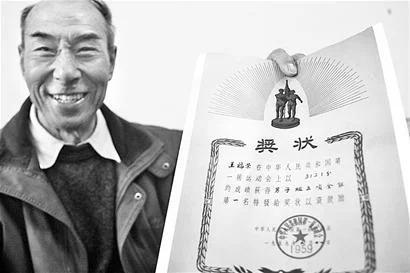 奖状
王福荣在中华人民共和国第
一届运动会上以 31218
的成绩获得男子五项全能
第一名特发给奖状以资鼓励
中华人民
一九五九年
1959